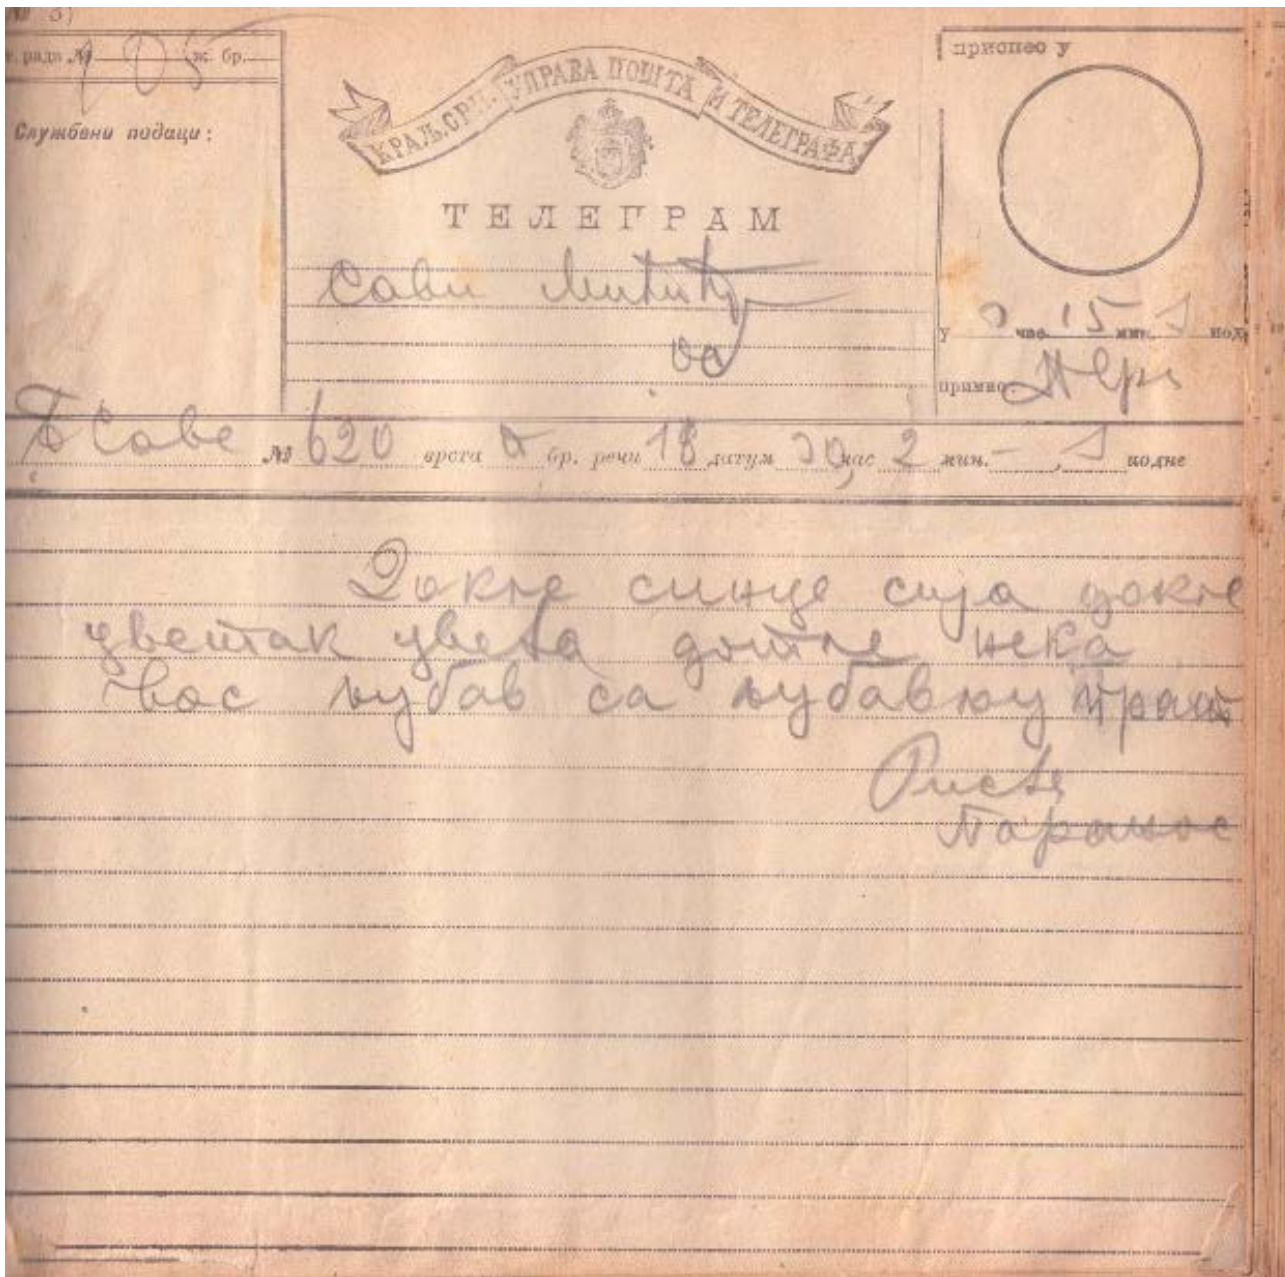 № 105 ж. бр.
Службени подаци:
КРАЉ. СРП. УПРАВА ПОШТА И ТЕЛЕГРАФА
ТЕЛЕГРАМ
Сави Митић
приспео у
у час. 15 мин. под.
примио:
Саве № 620 врста бр. речи 18 датум 30 час 2 мин. – , подне
Докле синце сија докле
цветак цвета дотле нека
Вас љубав са љубављу прати
Риста